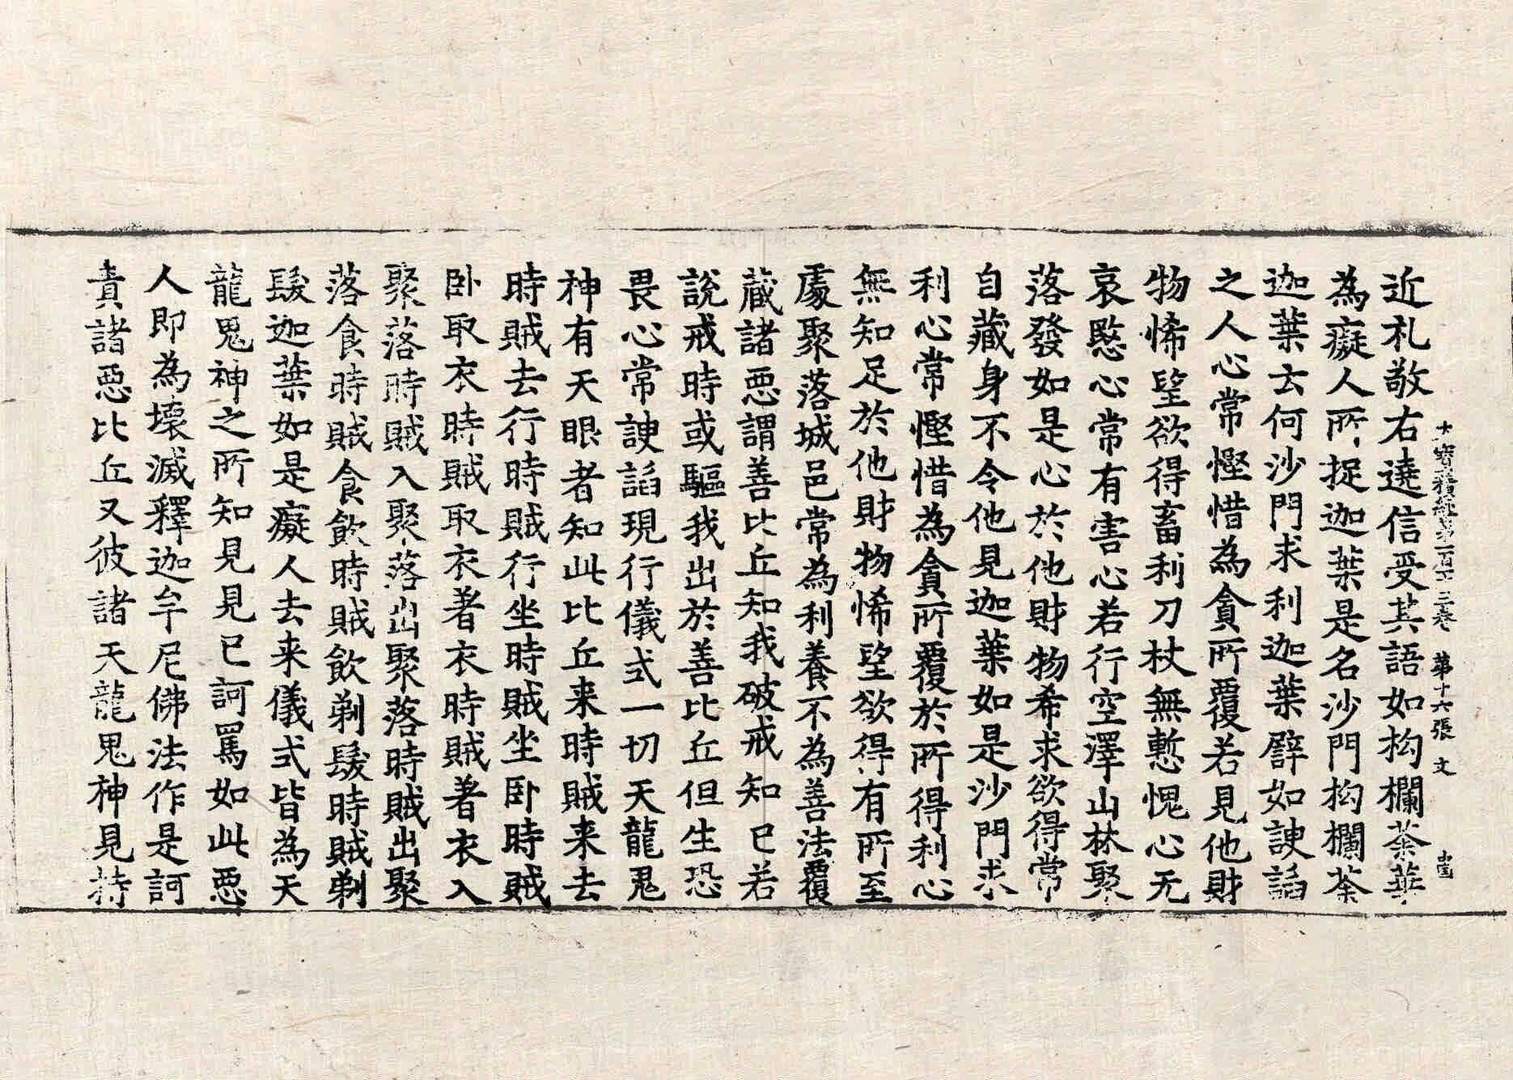 大寶積經第一百十三卷 第十六張 文
近札敬右遶信受其語如枸欄荼華
為癡人所捉迦葉是名沙門枸欄荼
迦葉云何沙門求利迦葉譬如諛諂
之人心常慳惜為貪所覆若見他財
物悕望欲得畜利刀杖無慙愧心无
哀愍心常有害心若行空澤山林聚
落發如是心於他財物希求欲得常
自藏身不令他見迦葉如是沙門求
利心常慳惜為貪所覆於所得利心
無知足於他財物悕望欲得有所至
處聚落城邑常為利養不為善法覆
藏諸惡謂善比丘知我破戒知已若
說戒時或驅我出於善比丘但生恐
畏心常諛諂現行儀式一切天龍鬼
神有天眼者知此比丘来時賊来去
時賊去行時賊行坐時賊坐卧時賊
卧取衣時賊取衣著衣時賊著衣入
聚落時賊入聚落出聚落時賊出聚
落食時賊食飲時賊飲剃髮時賊剃
髮迦葉如是癡人去来儀式皆為天
龍鬼神之所知見見已訶罵如此惡
人即為壞滅釋迦牟尼佛法作是訶
責諸惡比丘又彼諸天龍鬼神見持